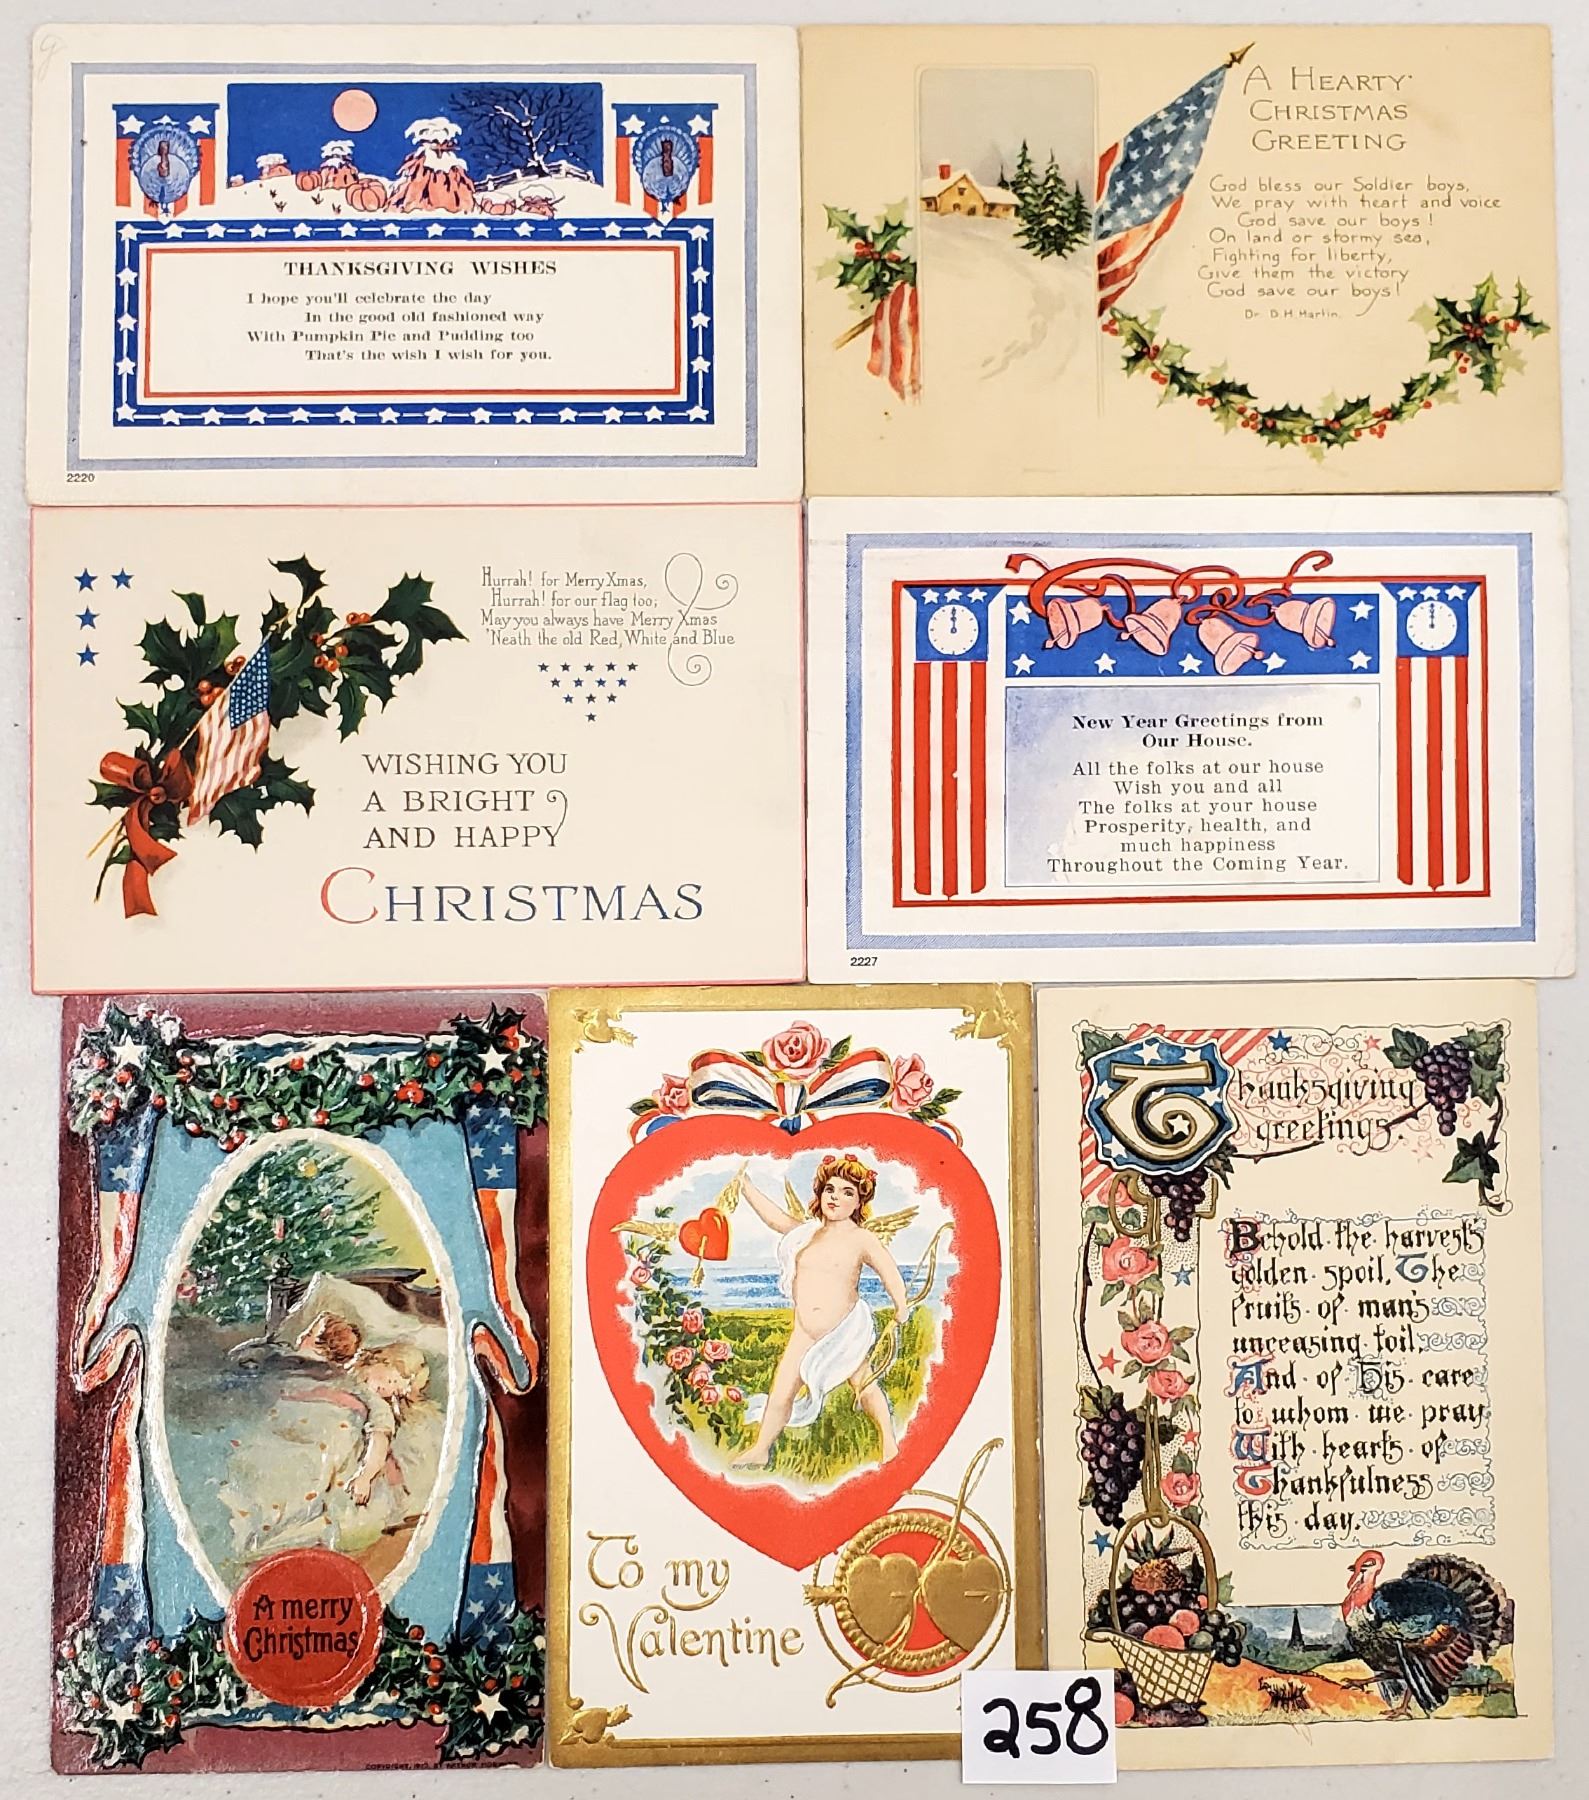 THANKSGIVING WISHES
I hope you'll celebrate the day
In the good old fashioned way
With Pumpkin Pie and Pudding too
That's the wish I wish for you.
2220
A HEARTY
CHRISTMAS
GREETING
God bless our Soldier boys,
We pray with heart and voice
God save our boys!
On land or stormy sea,
Fighting for liberty,
Give them the victory
God save our boys!
Dr. D.H. Martin.
Hurrah! for Merry Xmas,
Hurrah! for our flag too;
May you always have Merry Xmas
'Neath the old Red, White and Blue
WISHING YOU
A BRIGHT
AND HAPPY
CHRISTMAS
New Year Greetings from
Our House.
All the folks at our house
Wish you and all
The folks at your house
Prosperity, health, and
much happiness
Throughout the Coming Year.
2227
A merry
Christmas
COPYRIGHT, BY ARTHUR
To my
Valentine
Thanksgiving
greetings.
Behold · the · harvest's
golden · spoil, The
fruits · of · man's
unceasing · toil,
And · of · His · care
to · whom · we · pray
With · hearts · of
Thankfulness
this · day.
258